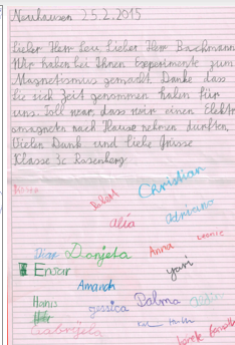 Neuhausen 25.2.2015
Lieber Herr Lou Lieber Herr Bachmann
Wir haben bei Ihnen Experimente zum
Magnetismus gemacht. Danke das
sie sich Zeit genommen haben für
uns. Toll war, dass wir einen Elektr
omagneten nach Hause nehmen durften.
Vielen Dank und liebe Grüsse
Klasse 3c Rosenberg
Christian
alia
Adriano
Dian Donjeta Anna Leonie
Ensar yasi
Amanda
Hanis jessica Palma
Gabrijela